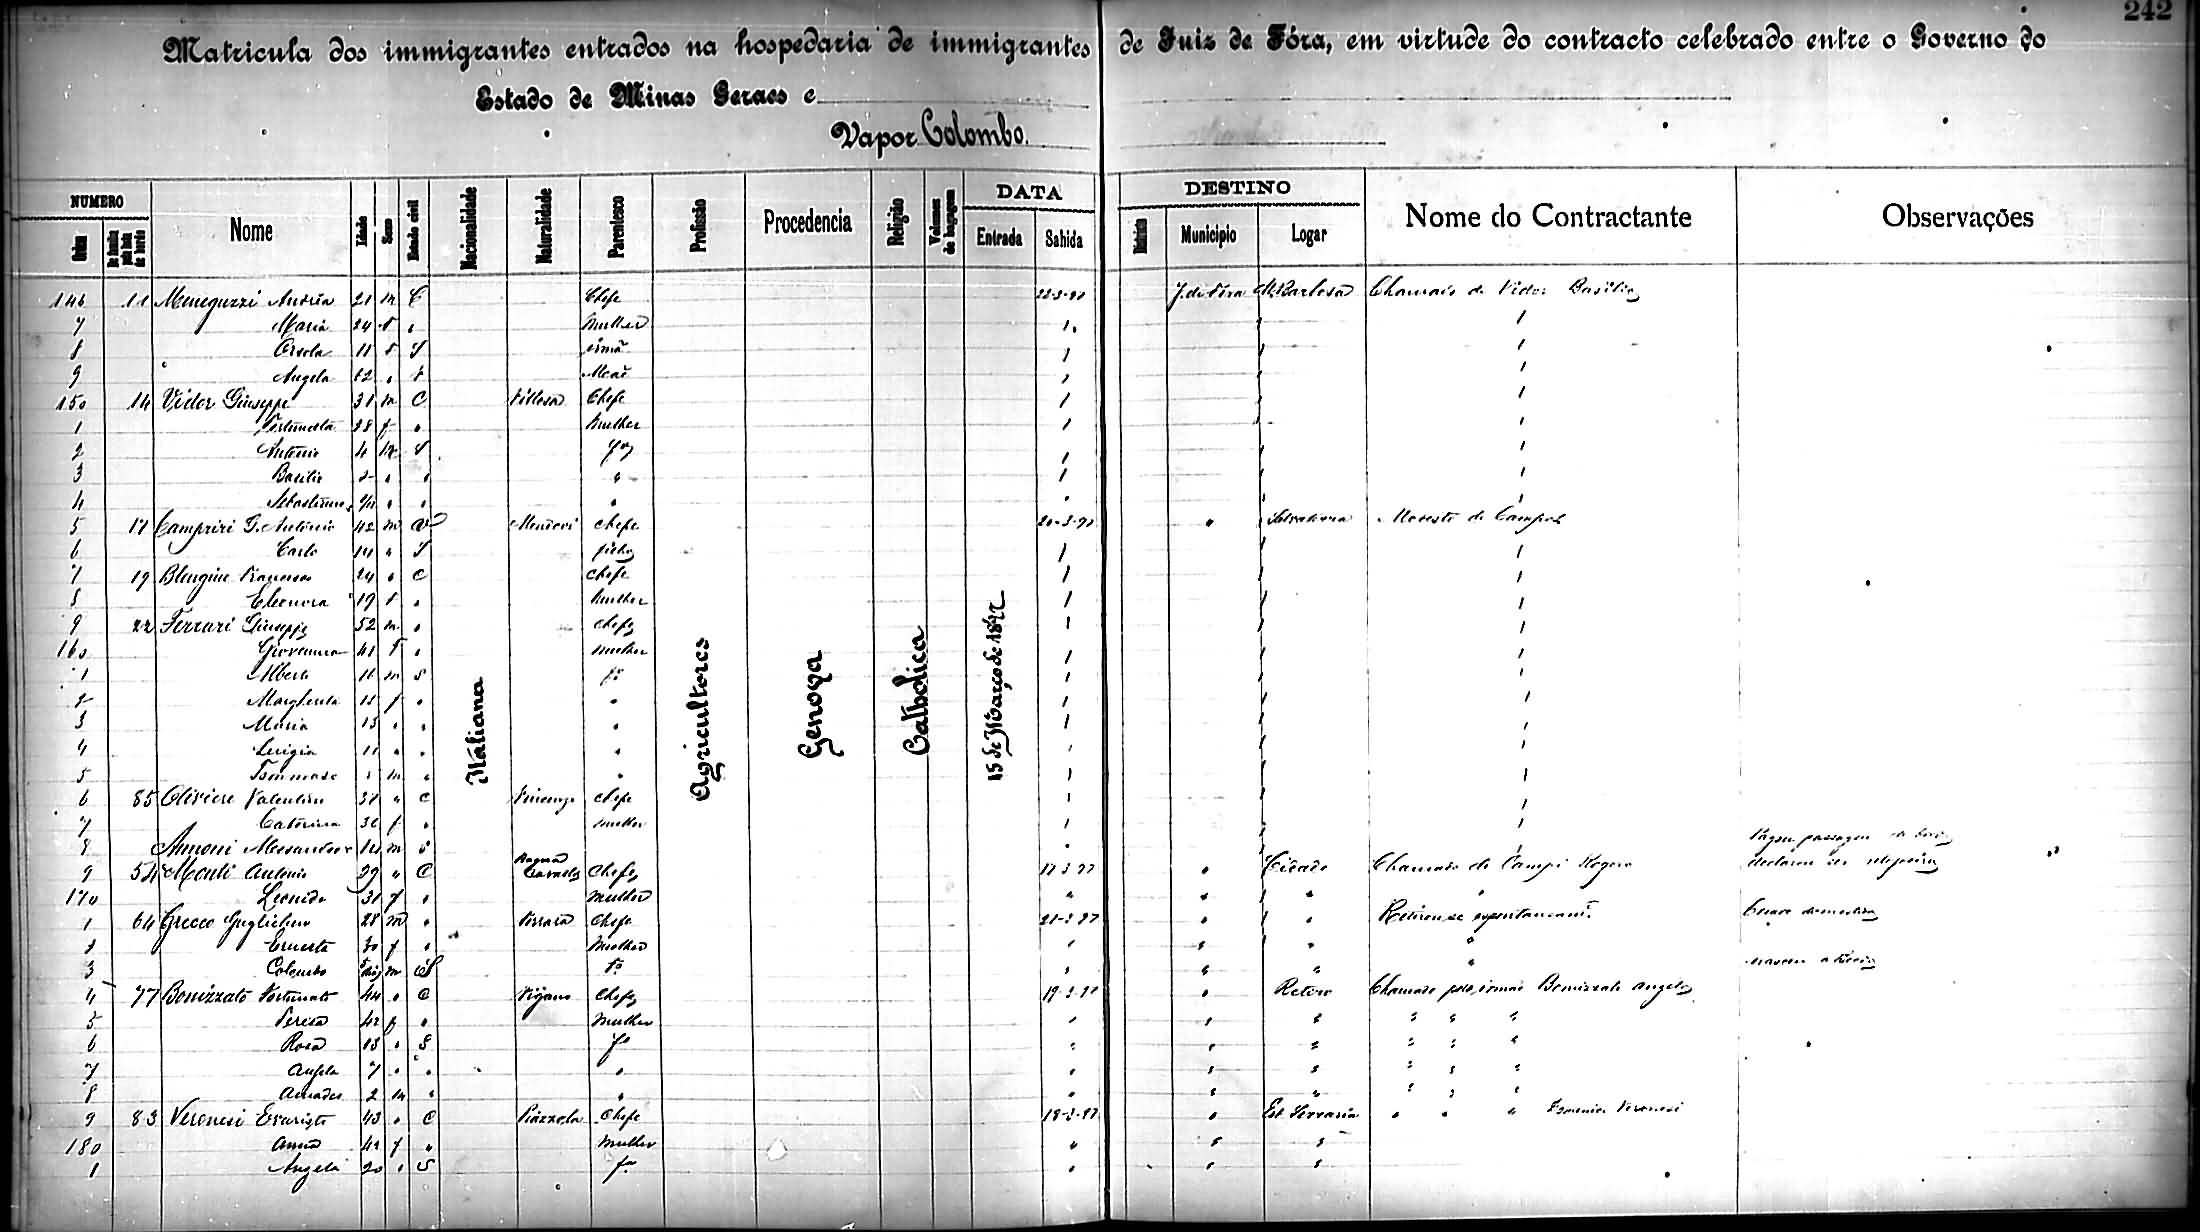 242
Matricula dos immigrantes entrados na hospedaria de immigrantes de Juiz de Fóra, em virtude do contracto celebrado entre o Governo do
Estado de Minas Geraes e
Vapor Colombo.
NUMERO Nome Idade Sexo Estado civil Nacionalidade Naturalidade Parentesco Profissão Procedencia Religião Volumes de bagagem DATA DESTINO Nome do Contractante Observações
Ordem De familia pela lista de bordo Entrada Sahida Districto Municipio Logar
Italiana Agricultores Genova Catholica 15 de Março de 1897
146 11 Meneguzzi Andréa 21 m C Chefe 22-3-97 J. de Fóra M. Barbosa Chamado de Vidor Basilio
7 Maria 24 f " Mulher
8 Orsola 11 f S irmã
9 Angela 52 " Mãe
150 14 Vidor Giuseppe 31 m C Chefe
1 Fortunata 28 f " Mulher
2 Antonio 4 m S fo
3 Basilio " " "
4 Sebastiano " " "
5 17 Campriri G. Antonio 42 m V Mondovi Chefe 20-3-97 " Salvaterra Modesto de Campos
6 Carlo 14 " S filho
7 19 Blengine Francesco 24 " C Chefe
8 Eleonora 19 f " Mulher
9 22 Ferrari Giuseppe 52 m " Chefe
160 Giovanna 41 f " Mulher
1 Alberto 16 m S fo
2 Margherita 15 f " "
3 Maria 13 " " "
4 Luigia 11 " " "
5 Tommaso m " "
6 85 Oliviere Valentino 31 " C Vicenza Chefe
7 Catterina 36 f " Mulher
8 Annoni Alessandro 14 m S Pagou passagem de bordo
9 54 Monti Antonio 29 " C Chefe 17-3-97 " Cidade Chamado de Campi Rogero declarou ser
170 Leonida 31 f " Mulher " " " "
1 64 Grecco Guglielmo 28 m " Ferrara Chefe 21-3-97 " " Retirou-se espontaneamte.
2 Ernesta 30 f " Mulher " " " "
3 Colombo m S fo " " " " nasceu a bordo
4 77 Bonizzato Fortunato 44 " C Chefe 19-3-97 " Retiro Chamado pelo irmão Bonizzato Angelo
5 Teresa 42 f " Mulher " " " " " "
6 Rosa 13 " S fo " " " " " "
7 Angela 7 " " " " " " " " "
8 Amadeo 2 m " " " " " " " "
9 83 Veronesi Evaristo 43 " C Piazzola Chefe 18-3-97 " Est. Serraria " " " Domenico Veronesi
180 Anna 42 f " Mulher " " "
1 Angela 20 " S fa " " "